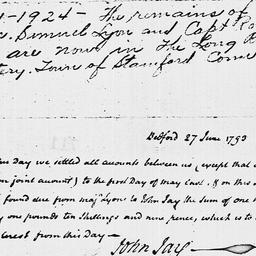 1-1924- The remains of
Simuel Lyon and Capt Ro
are now in The Long R
tery. Town of Stamford Conn
Bedford 27 June 1753
day we settled all accounts between us, (except that
joint account) to the first Day of may last. & on this
found due from majr Lyon to John Jay the sum of one h
y one pounds ten shillings and nine pence, which is to
terest from this Day—
John Jay